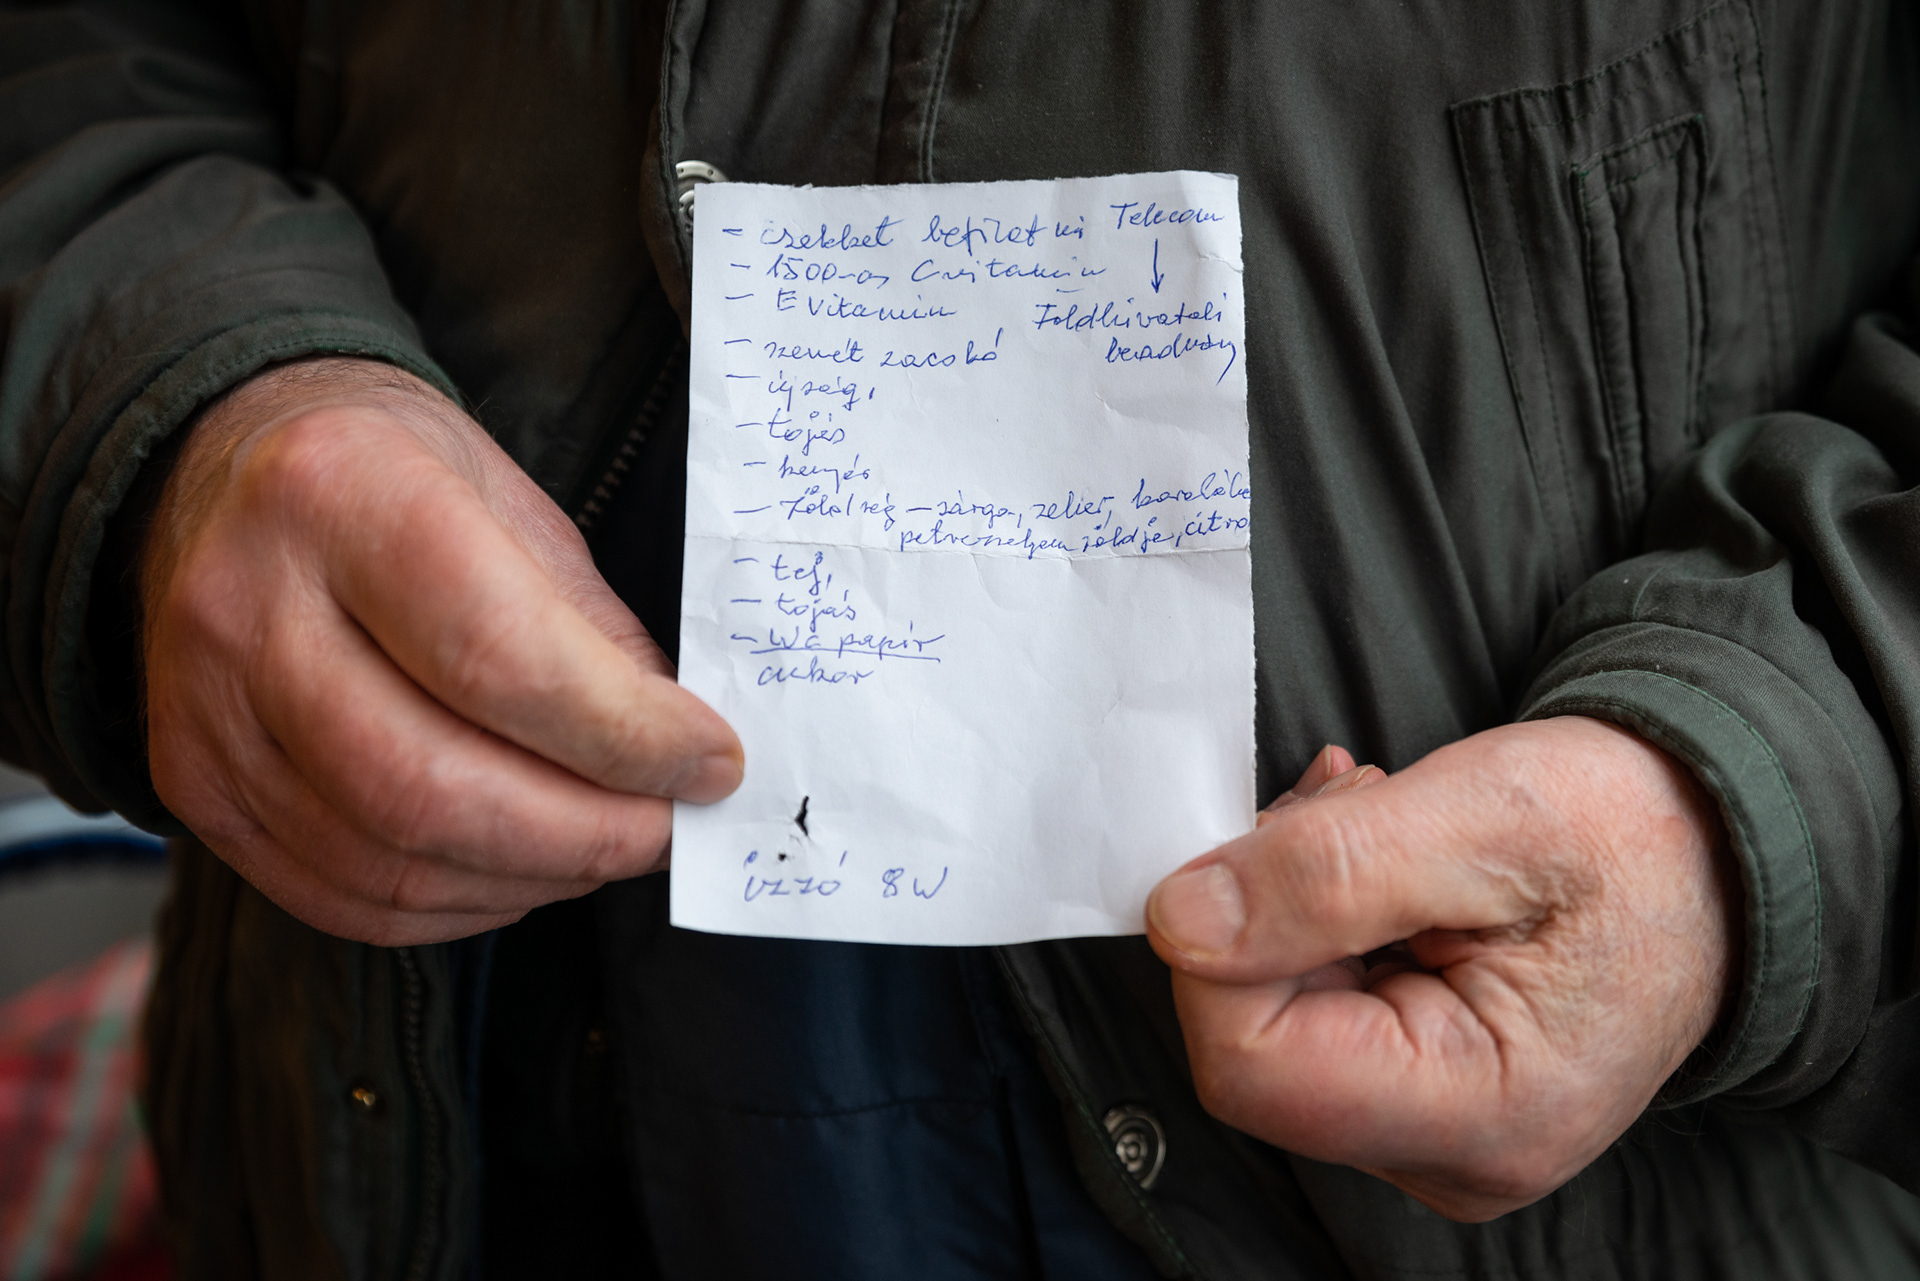 - csekket befizetni Telecom
↓
- 1500-as C vitamin
- E vitamin
Földhivatali
beadvány
- szemét zacskó
- újság,
- tojás
- kenyér
- Zöldség - sárga, zeller, karalábé
petrezselyem zöldje, citro
- tej,
- tojás
- WC papír
cukor
izzó 8W